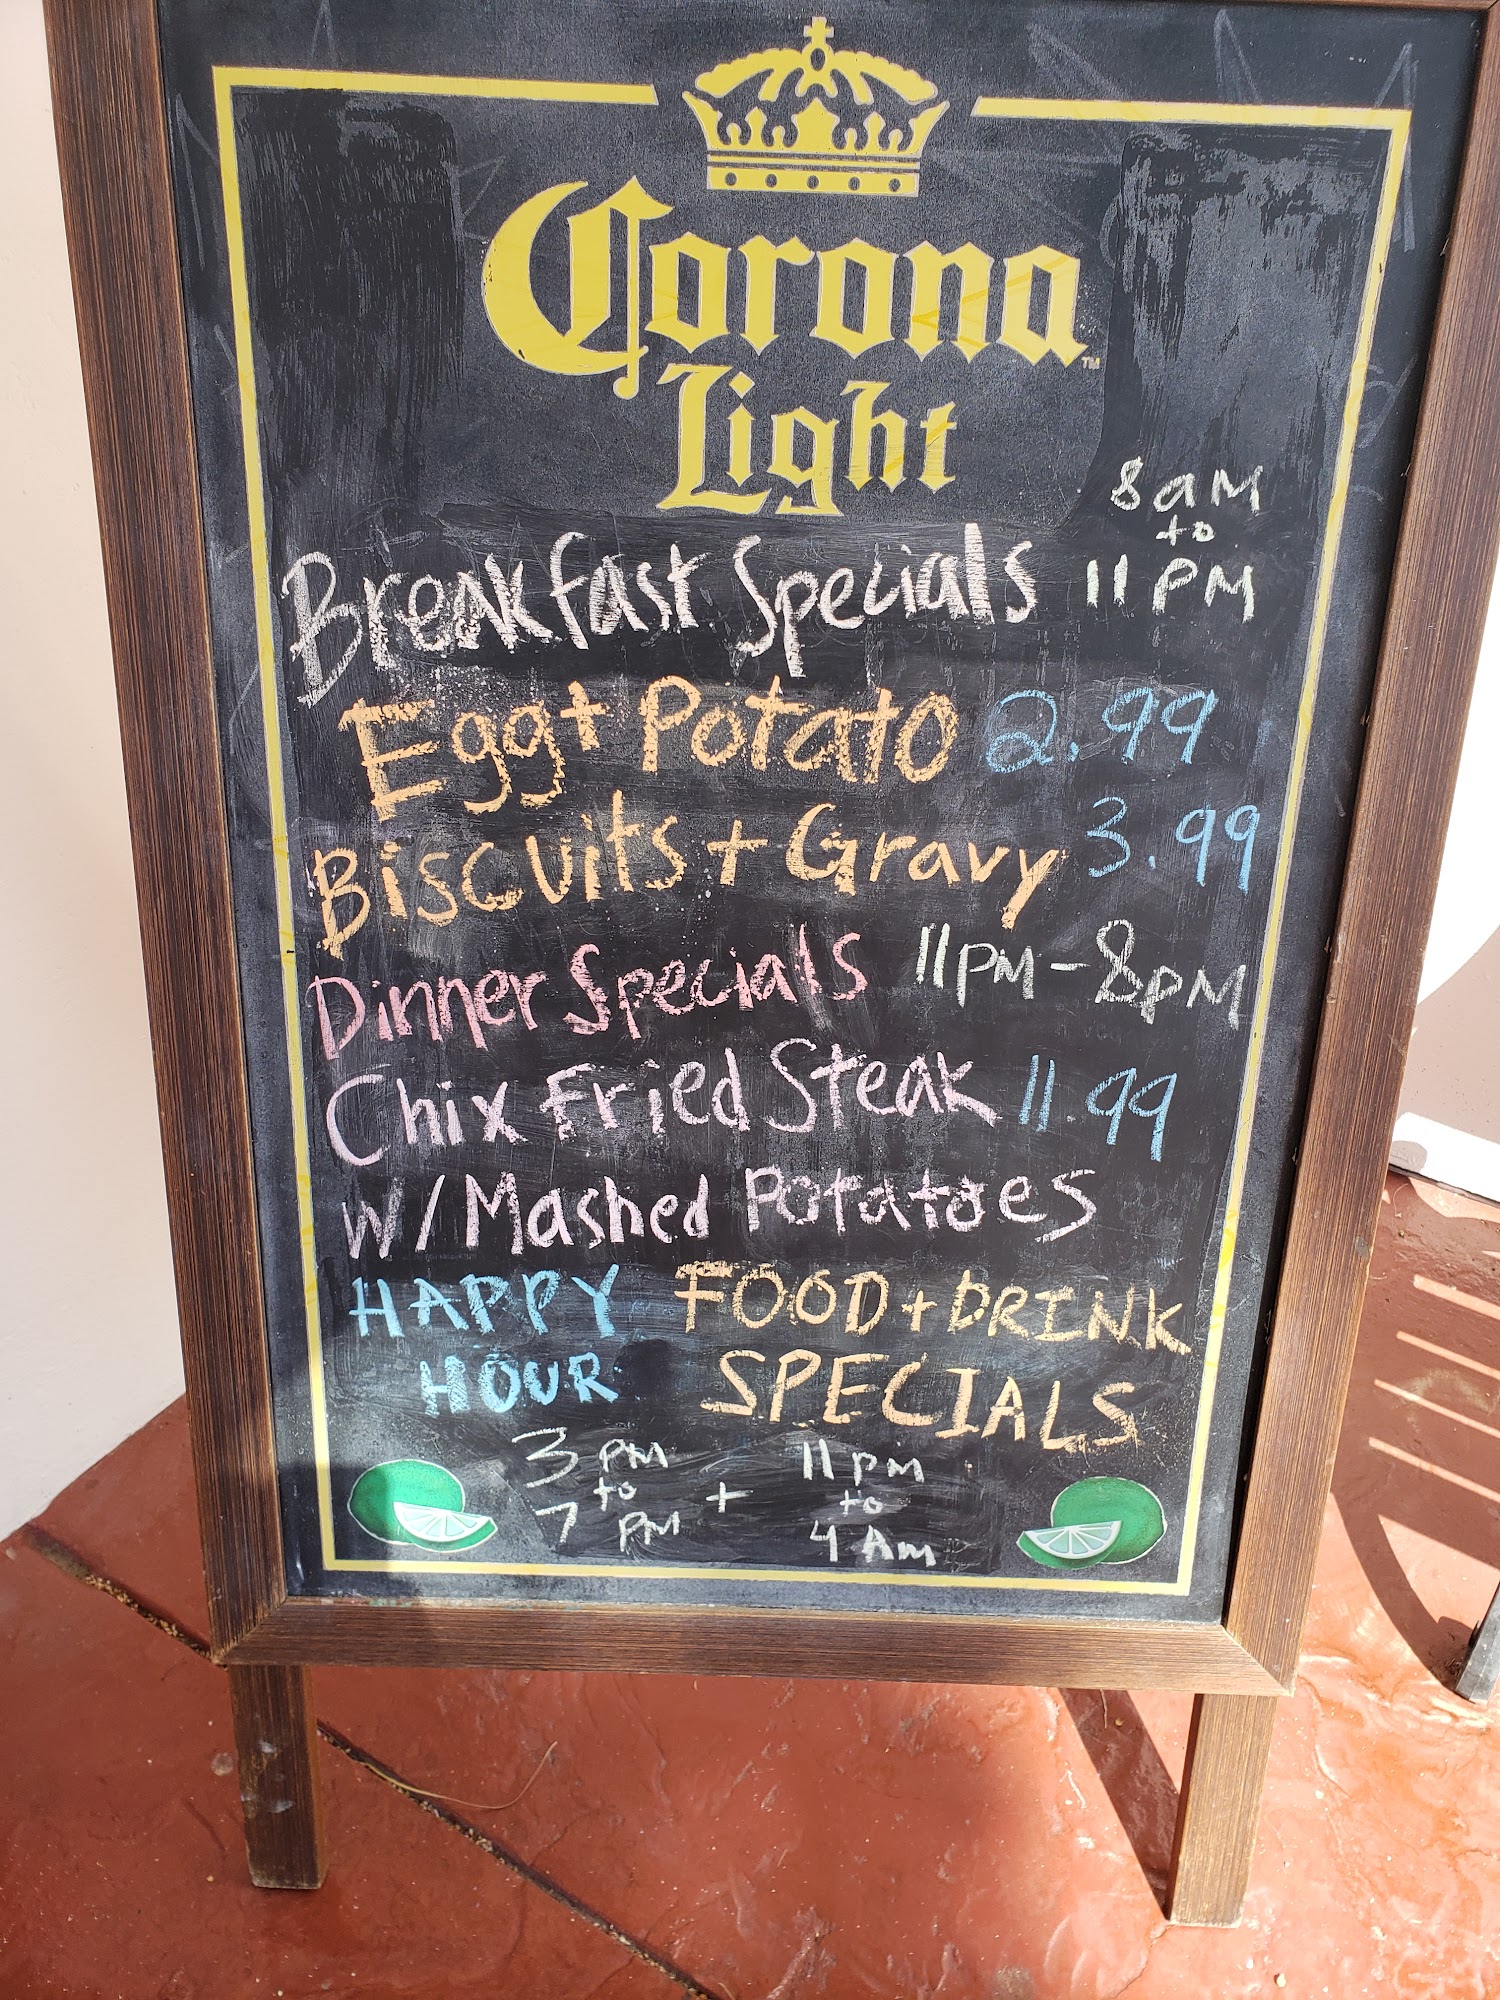 Corona
Light™
8am
to
11PM
Breakfast Specials
Egg+ Potato 2.99
Biscuits + Gravy 3.99
Dinner Specials 11PM-8PM
Chix Fried Steak 11.99
W/Mashed Potatoes
HAPPY FOOD + DRINK
HOUR SPECIALS
3 PM + 11 pm
to to
7 PM 4 Am